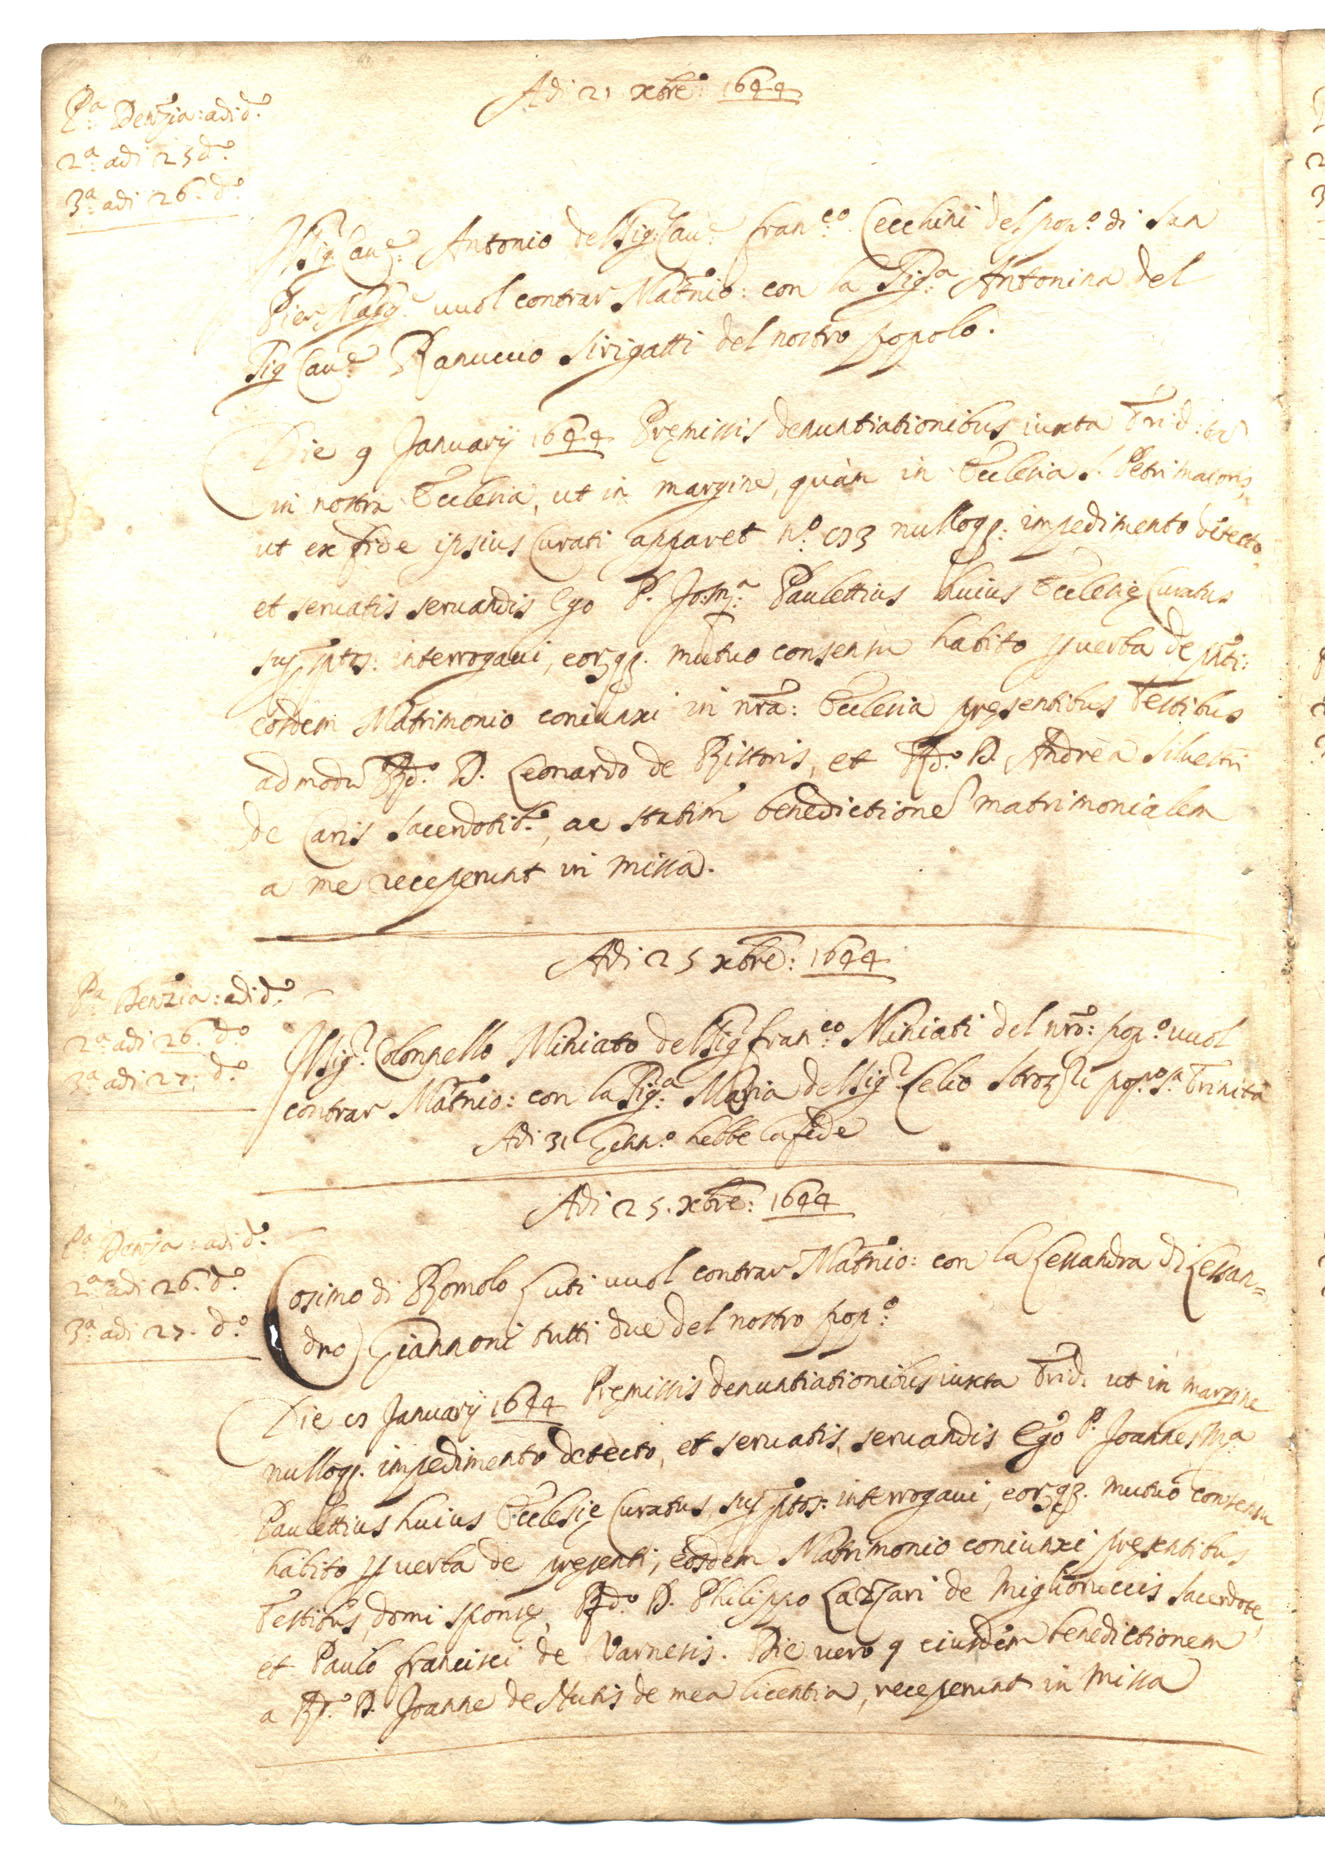 Adi 21 xbre: 1644
Pa Denzia: adi do
2a adi 25 do
3a adi 26. do
Il Sig Caue: Antonio del Sig Caue franco Cecchini del popo di San
Pier Magge vuol contrar Matrnio: con la Siga Antonina del
Sig Caue Ranuccio Sirigatti del nostro popolo.
Die 9 Januarij 1644 Premissis denuntiationibus iuxta Trid:
in nostra Ecclesia, ut in margine, quàm in Ecclesia S. Petri maioris,
ut ex fide ipsius Curati apparet no nulloqz: impedimento detecto
et seruatis seruandis Ego P. Jo: Ma Paulettius huius Ecclesię Curatus
supptos: interrogaui, eorqz. mutuo consensu habito p verba de pnti:
eosdem Matrimonio coniunxi in nra: Ecclesia pręsentibus Testibus
admodu Rdo. D. Leonardo de Ristoris, et Rdo. D. Andrea Siluestri
de Caris sacerdotibs, ac statim benedictione matrimonialem
a me receperunt in missa.
Adi 25 xbre: 1644
Pa Denzia: adi do
2a adi 26. do
3a adi 27: do
Il Sigr Colonnello Miniato del Sig franco Miniati del nro: popo vuol
contrar Matrnio: con la Siga Maria del Sigr Lelio Strozzi popo Sa Trinita
Adi 31 Genno hebbe la fede
Adi 25. xbre: 1644
Pa Denzia: adi do
2a adi 26. do
3a adi 27. do
Cosimo di Romolo Luti vuol contrar Matrnio: con la Lessandra di Lessan=
dro Giannoni tutti due del nostro popo
Die Januarij 1644 Premissis denuntiationibus iuxta Trid. ut in margine
nulloqz. impedimento detecto, et seruatis seruandis Ego P. Joannes Ma
Paulettius huius Ecclesię Curatus, supptos: interrogaui, eorqz. mutuo consensu
habito p verba de pręsenti, eosdem Matrimonio coniunxi pręsentibus
Testibus, domi sponsę, Rdo. D. Philippo Lazzari de Migliorucciis Sacerdote,
et Paulo francisci de Varnesis. Die vero 9 eiusdem benedictionem
a Rdo. D. Joanne de Nutis de mea licentia, receperunt in Missa